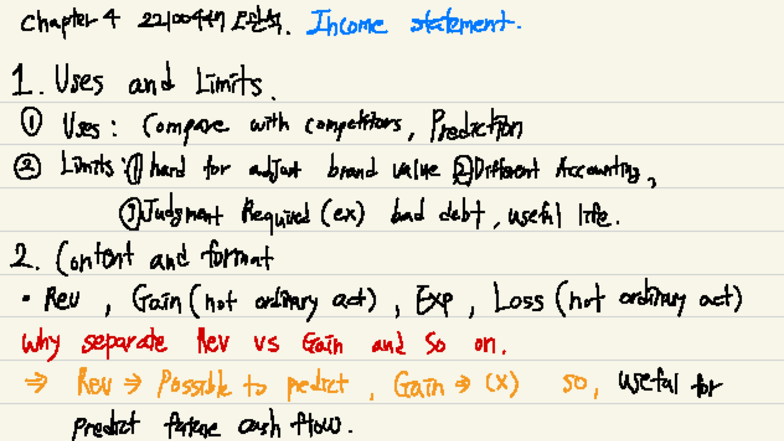 Chapter 4 22100447 오관석. Income statement.
1. Uses and Limits.
① Uses : Compare with competitors, Prediction
② Limits : ① hard for adjust brand value ② Different Accounting,
③ Judgment Required (ex) bad debt, useful life.
2. Content and format
• Rev, Gain (not ordinary act), Exp, Loss (not ordinary act)
Why separate Rev vs Gain and So on.
⇒ Rev → Possible to predict, Gain → (X) so, useful for
predict future cash flow.